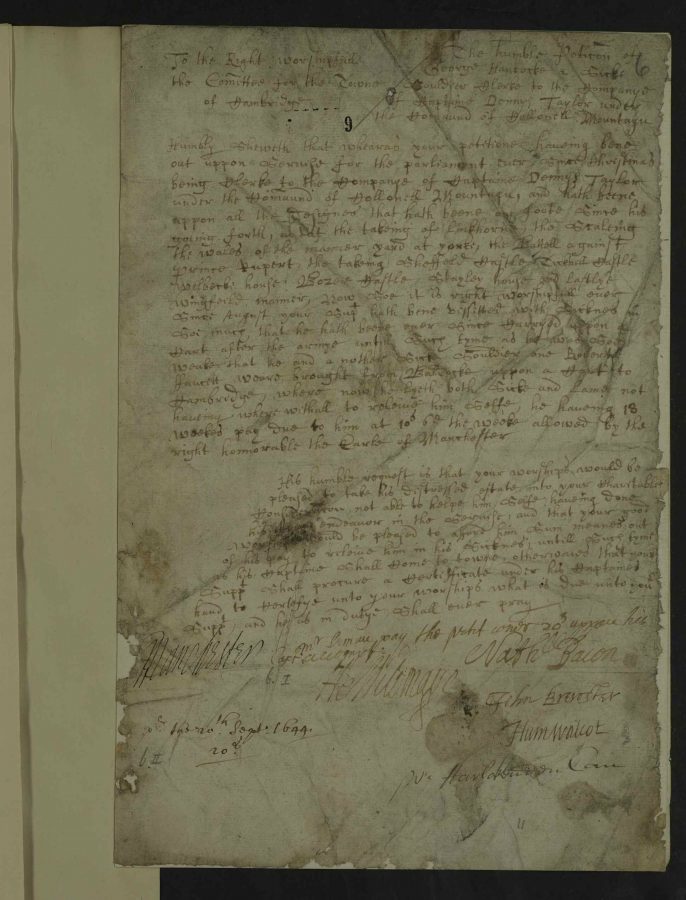 To the Right worshipfull
the Comittee for the Towne
of Cambridge
The humble Peticon of
George Hancocke a Sicke
Souldier Clerke to the Companye
of Captaine Dennys Taylor under
the Comaund of Collonell Mountagu
6
9
Humbly Sheweth that whearas your petitioner haveing bene
out uppon Servise for the parliament ever Since Christmas
being Clerke to the Companye of Captaine Dennys Taylor
under the Comaund of Collonell Mountagu, and hath beene
uppon all the Designes that hath beene on foote Since his
going forth, as at the takeing of Linkhorne, the Scaleing
the wales of the manner yard at yorke, the Battell against
prince Rupert, the takeing Sheffeild Castle Castle
Welbecke house Castle Stayley house and Lastlye
Wingfeild manner, Now Soe it is right worshipfull ever
Since August your Supt hath bene vissitted with Sicknes in
Soe much that he hath beene ever Since Carryed uppon a
Cart after the armye untill Such tyme as he was Soe
weake that he and a nother Sicke Souldier one Robert
Faucett weare brought from uppon a Cart to
Cambridge, where now he lyeth both Sicke and Lame not
haveing wherewithall to releive him Selfe, he haveing 18
weekes pay due to him at 10s 6d the weeke allowed by the
right honnorable the Earle of Manchester
His humble request is that your worships would be
pleased to take his distressed estate into your Charitable
Consideracon, not able to helpe him Selfe haveing done
his endeavor in the Servise, and that your good
worships would be pleased to afford him Sum meanes out
of his pay to releive him in his Sicknes, untill Such tyme
as his Captaine Shall Come to towne, otherwaies that your
Suppt Shall procure a Certifficate under his Captaines
hand to Certefye unto your worships what is due unto your
Suppt, and hee as in dutye Shall ever pray
Mr Leman pay the petitioner 20s uppon his
accompt
Manchester
Nath: Bacon
John Brewster
Hum Walcot
pd the 20th Sept. 1644.
20s
11